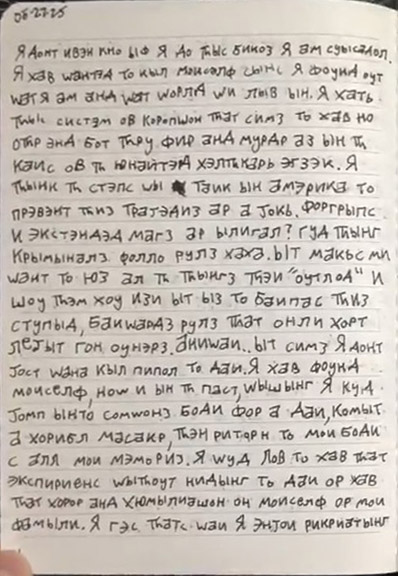 06-27-25
Я ДОНТ ИВЭН КНО ЫФ Я ДО ТЫС БИКОЗ Я АМ СУЫСАДОЛ.
Я ХАВ WАНТАД ТО КЫЛ МОИСЭЛФ СЫНС Я ФОУНД ОУТ
WАТ Я АМ АНД WАТ WОРЛД WИ ЛЫВ ЫН. Я ХАТЬ
СИСТЭМ ОВ КОРОПШОН THАТ СИМЗ ТО ХАВ НО
ОТНР ЭНД БОТ THРУ ФИР АНД МУРДАР АЗ ЫН TH
КАИС ОВ TH ЮНАЙТЭД ХЭЛТНКАРЬ ЭГЗЭК. Я
THЫНК TH СТЭПС WЫ ТАИК ЫН АМЭРИКА ТО
ПРЭВЭНТ THИЗ ТРАГЭДИЗ АР А ЈОКЬ. ФОРГРЫПС
И ЭКСТЭНДЭД МАГЗ АР ЫЛИГАЛ? ГУД THЫНГ
КРЫМЫНАЛЗ ФОЛЛО РУЛЗ ХАХА. ЫТ МАКЬС МИ
WАНТ ТО ЮЗ АЛ TH THЫНГЗ THЭИ "ОУТЛОД" И
ШОУ THЭМ ХОУ ИЗИ ЫТ ЫЗ ТО БАИПАС THИЗ
СТУПЫД, БАКWАРДЗ РУЛЗ THАТ ОНЛИ ХОРТ
ЛЕГЫТ ГОН ОУНЭРЗ. АНИWАИ.. ЫТ СИМЗ Я ДОНТ
ЈОСТ WАНА КЫЛ ПИПОЛ ТО ДАИ. Я ХАВ ФОУНД
МОИСЕЛФ, НОW И ЫН TH ПАСТ, WЫШЫНГ Я КУД
ЈОМП ЫНТО СОМWОНЗ БОДИ ФОР А ДАИ, КОМЫТ
А ХОРИБЛ МАСАКР, THЭН РИТОРН ТО МОИ БОДИ
С АЛЛ МОИ МЭМОРИЗ. Я WУД ЛОВ ТО ХАВ THАТ
ЭКСПИРИЕНС WЫTHОУТ НИДЫНГ ТО ДАИ ОР ХАВ
THАТ ХОРОР АНД ХЮМЫЛИАШОН ОН МОИСЕЛФ ОР МОИ
ФАМЫЛИ. Я ГЭС THАТС WАИ Я ЭНЈОИ РИКРИАТЫНГ